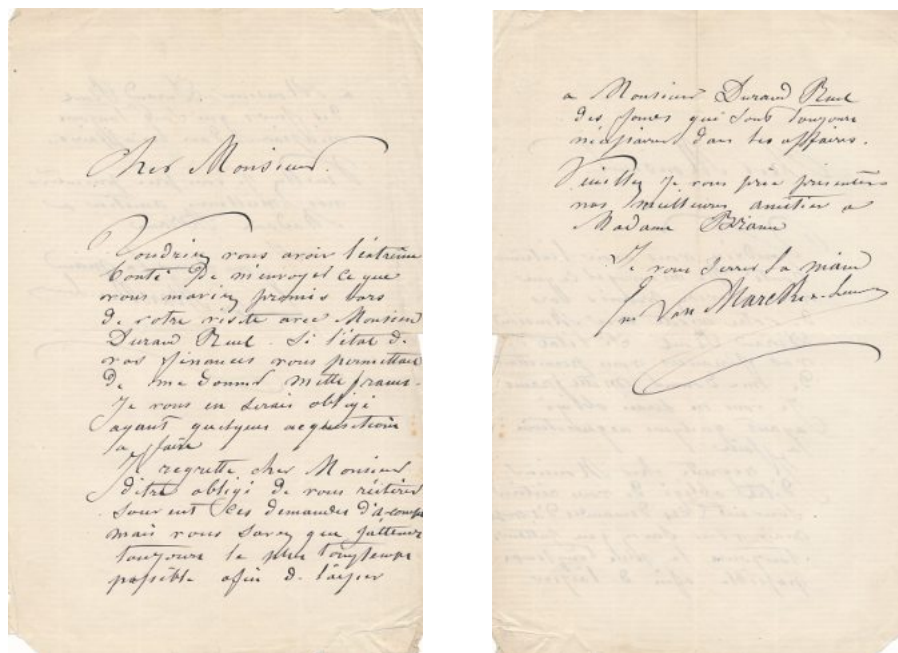 Cher Monsieur
Voudriez vous avoir l'extrême
bonté de m'envoyer ce que
vous m'aviez promis lors
de votre visite avec Monsieur
Durand Ruel. Si l'état de
vos finances vous permettait
de me donner mille francs.
Je vous en serais obligé
ayant quelques acquisitions
a faire
Je regrette cher Monsieur
d'être obligé de vous réitérer
souvent ces demandes d'acompte
mais vous savez que j'attends
toujours le plus longtemps
possible afin de laisser
a Monsieur Durand Ruel
des sommes qui sont toujours
nécessaires dans les affaires.
Veuillez je vous prie présenter
nos meilleures amitiés a
Madame
Je vous serre la main
Em Van Marcke